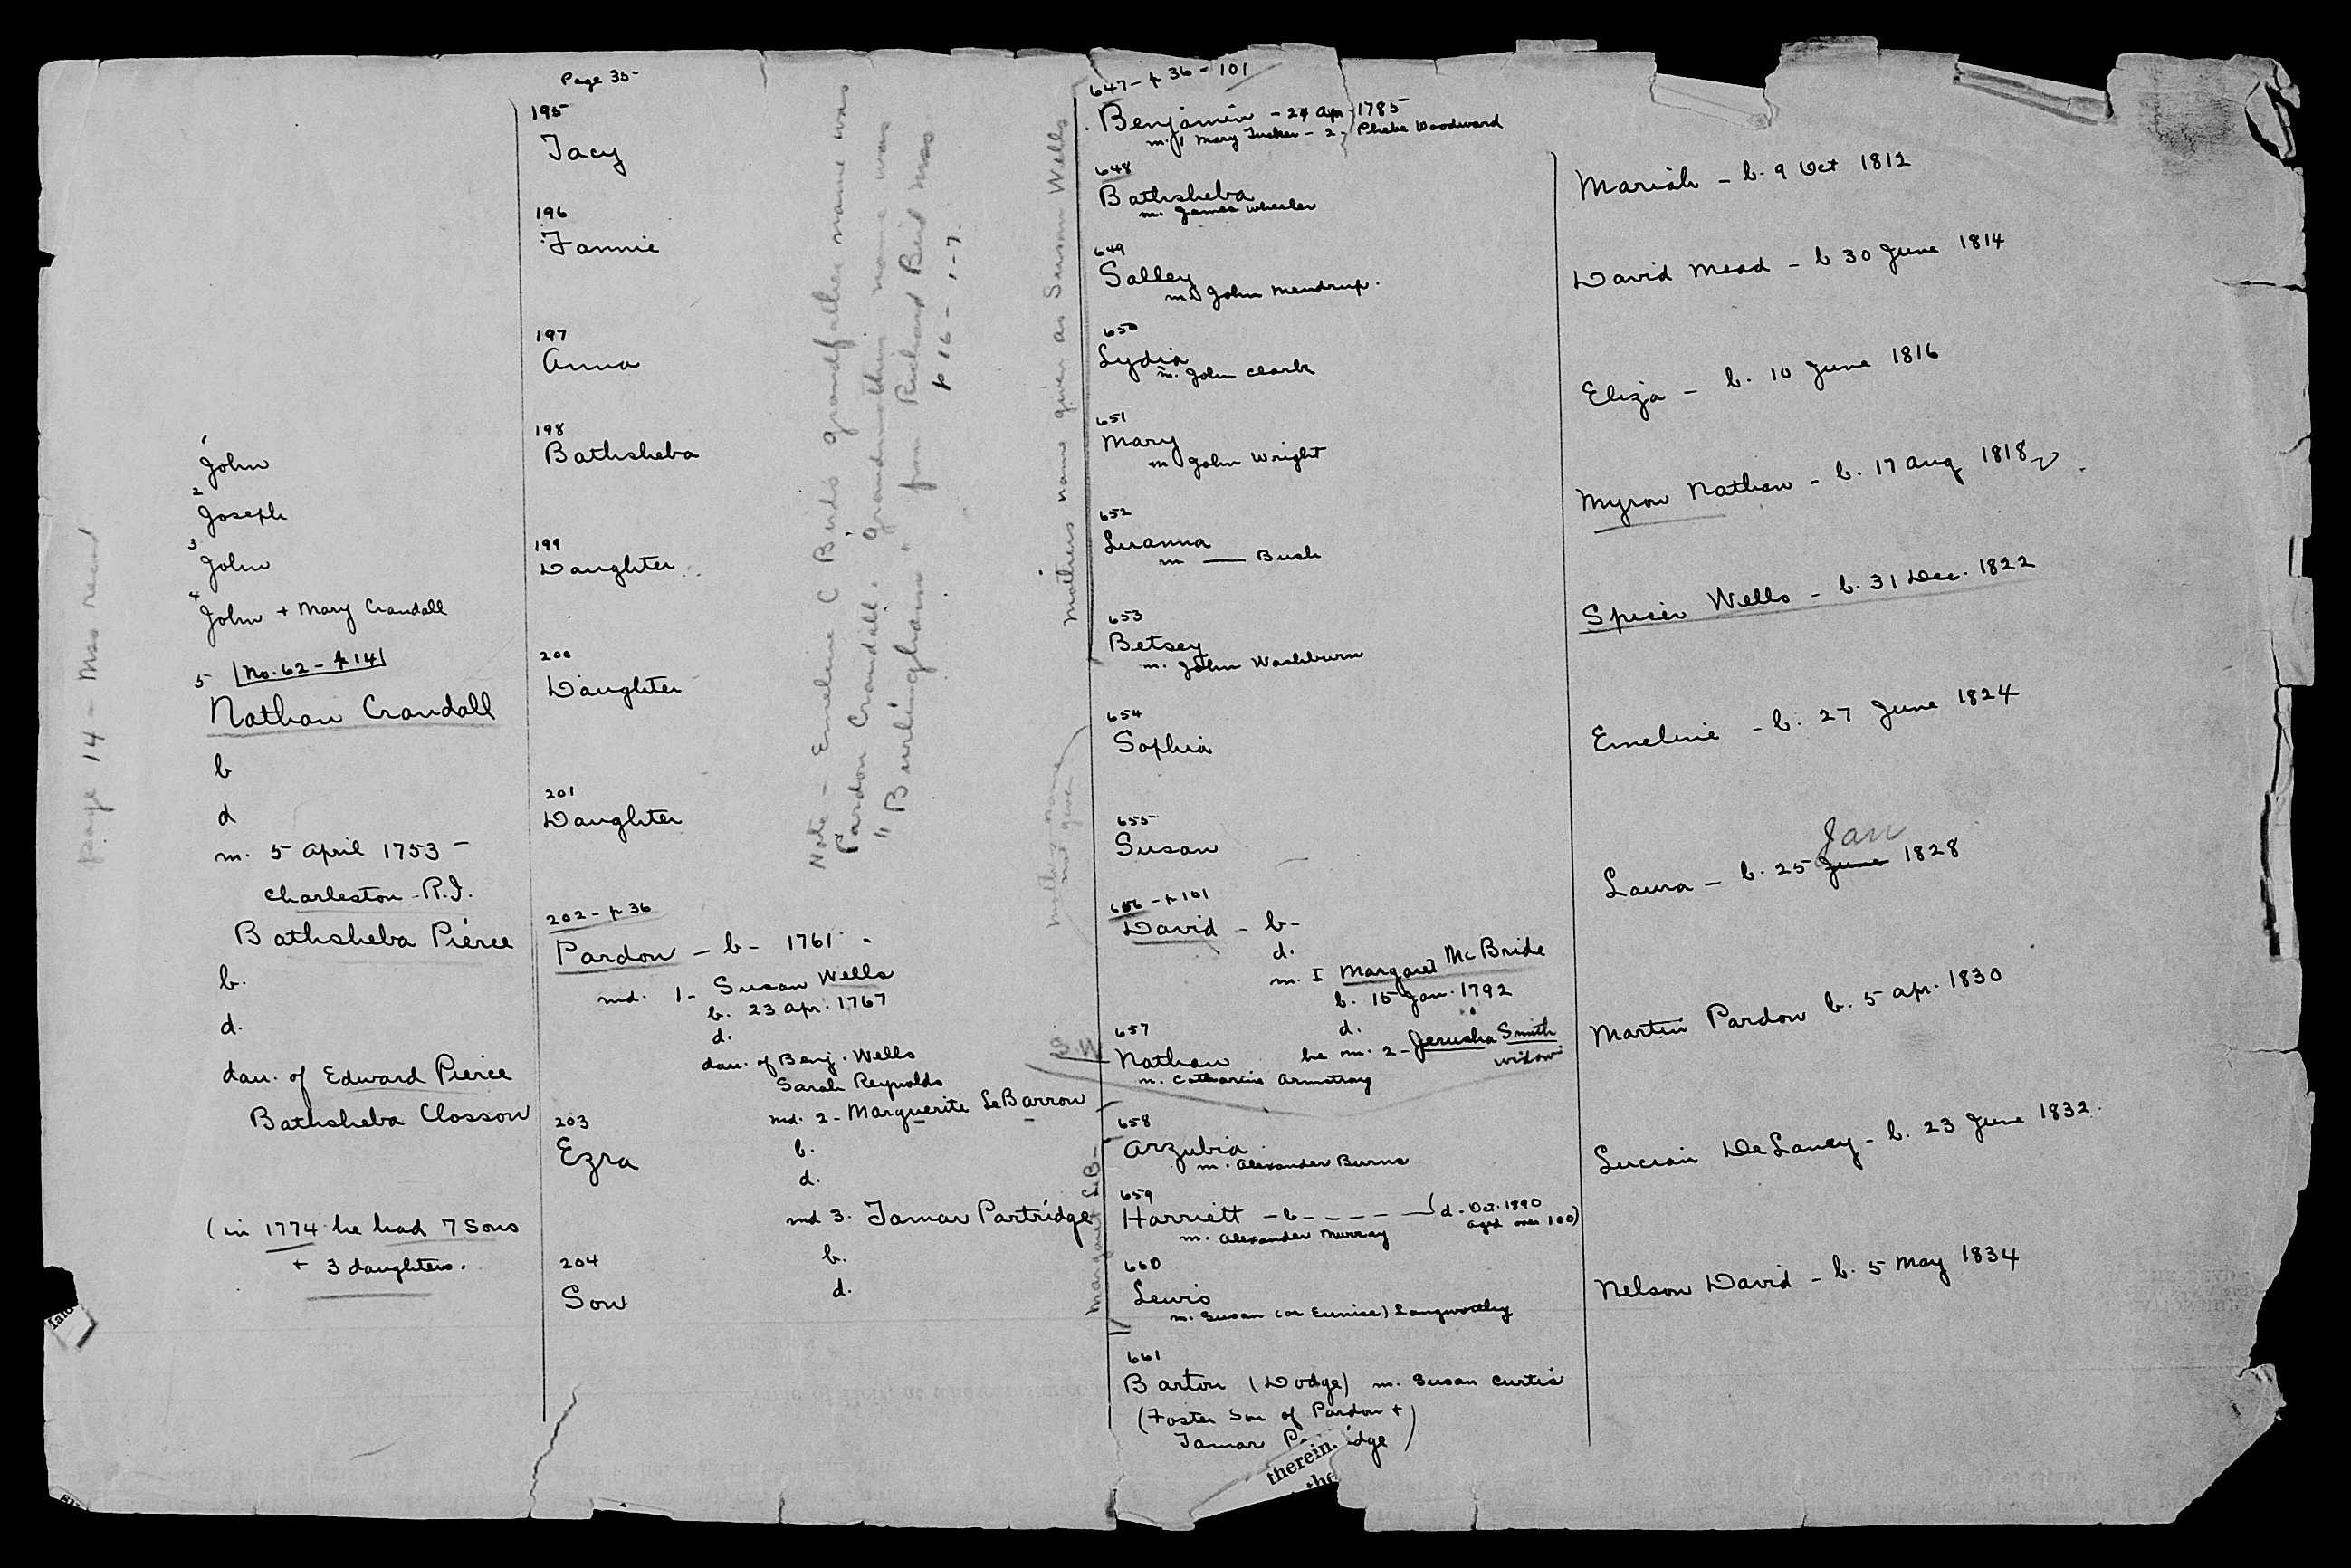 Page 35
page 14 - Mss record
1
John
2
Joseph
3
John
4
John + Mary Crandall
5 No. 62 - p 14
Nathan Crandall
b
d
m. 5 April 1753 -
Charleston - R.I.
Bathsheba Pierce
b.
d.
dau. of Edward Pierce
Bathsheba Closson
(in 1774 he had 7 Sons
+ 3 daughters.
195
Tacy
196
Fannie
197
Anna
198
Bathsheba
199
Daughter
200
Daughter
201
Daughter
202 - p 36
Pardon - b - 1761 -
md. 1 - Susan Wells
b. 23 Apr. 1767
d.
dau. of Benj. Wells
Sarah Reynolds
md. 2 - Marguerite LeBarron
b.
d.
203
Ezra
md 3. Tamar Partridge
b.
d.
204
Son
Note - Emeline C Birds grandfather name was
Pardon Crandall. Grandmothers name was
"Burlingham" from Richard Bird Mss
p 16 - 1-7.
Mothers name given as Susan Wells
mothers name
not given
S. W
Margaret LeB-
647 - p 36 - 101
Benjamin - 24 Apr 1785
m. 1 Mary Tucker - 2 - Phebe Woodward
648
Bathsheba
m. James Wheeler
649
Salley
m. John Mendrup.
650
Lydia
m. John Clark
651
Mary
m John Wright
652
Luanna
m —— Bush
653
Betsey
m. John Washburn
654
Sophia
655
Susan
656 - p 101
David - b -
d.
m. I Margaret McBride
b. 15 Jan. 1792
d.
he m. 2 - Jerusha Smith
widow
657
Nathan
m. Catharine Armstrong
658
Arzubia
m. Alexander Burns
659
Harriett - b - - - - - (d - Oct. 1890
aged over 100)
m. Alexander Murray
660
Lewis
m. Susan (or Eunice) Langworthy
661
Barton (Dodge) m. Susan Curtis
(Foster Son of Pardon +
Tamar P idge)
therein.
the
Mariah - b. 9 Oct 1812
David Mead - b 30 June 1814
Eliza - b. 10 June 1816
Myron Nathan - b. 17 Aug 1818
Spicer Wells - b. 31 Dec. 1822
Emeline - b. 27 June 1824
Jan
Laura - b. 25 June 1828
Martin Pardon b. 5 Apr. 1830
Lucian DeLancy - b. 23 June 1832.
Nelson David - b. 5 May 1834